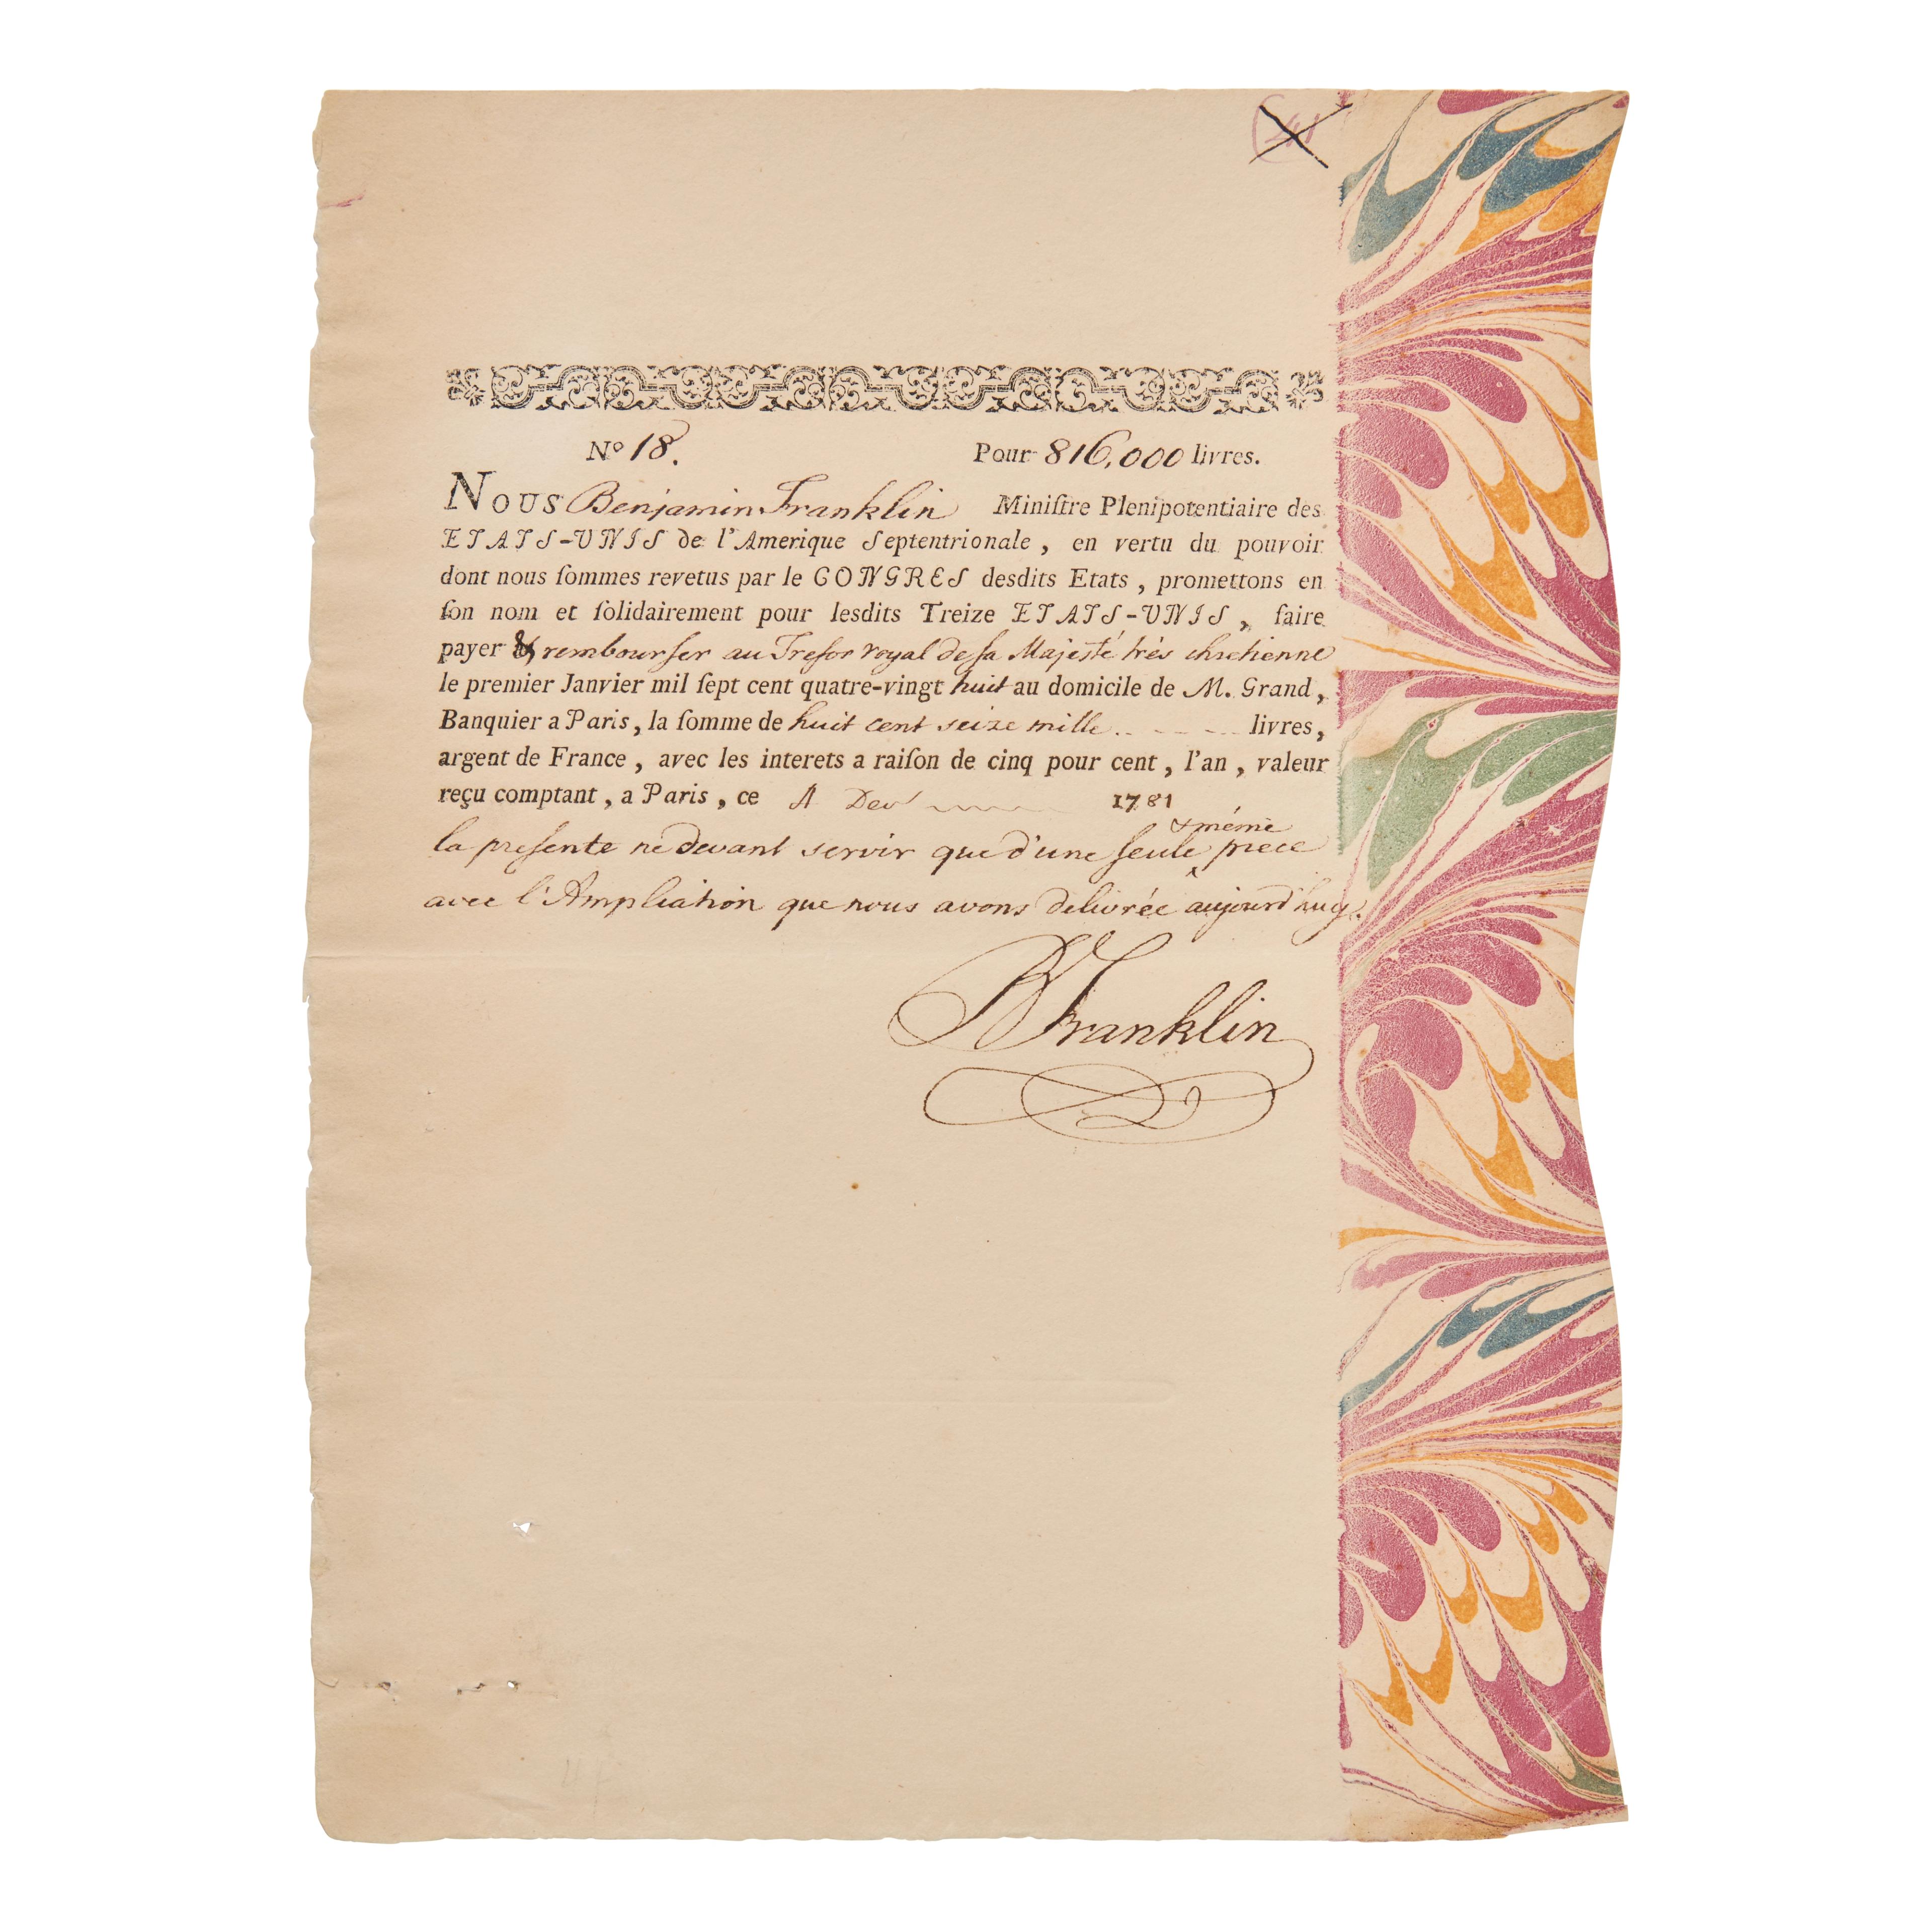 No 18.
Pour 816,000 livres.
NOUS Benjamin Franklin Miniſtre Plenipotentiaire des
ETATS-UNIS de l'Amerique Septentrionale, en vertu du pouvoir
dont nous ſommes revetus par le CONGRES desdits Etats, promettons en
ſon nom et ſolidairement pour leſdits Treize ETATS-UNIS, faire
payer & rembourſer au Treſor royal de ſa Majesté trés chretienne
le premier Janvier mil ſept cent quatre-vingt huit au domicile de M. Grand,
Banquier a Paris, la ſomme de huit cent seize mille livres,
argent de France, avec les interets a raiſon de cinq pour cent, l'an, valeur
reçu comptant, a Paris, ce 1781
& même
la preſente ne devant servir que d'une ſeule piece
avec l'Ampliation que nous avons delivrée aujourd'huy.
B Franklin